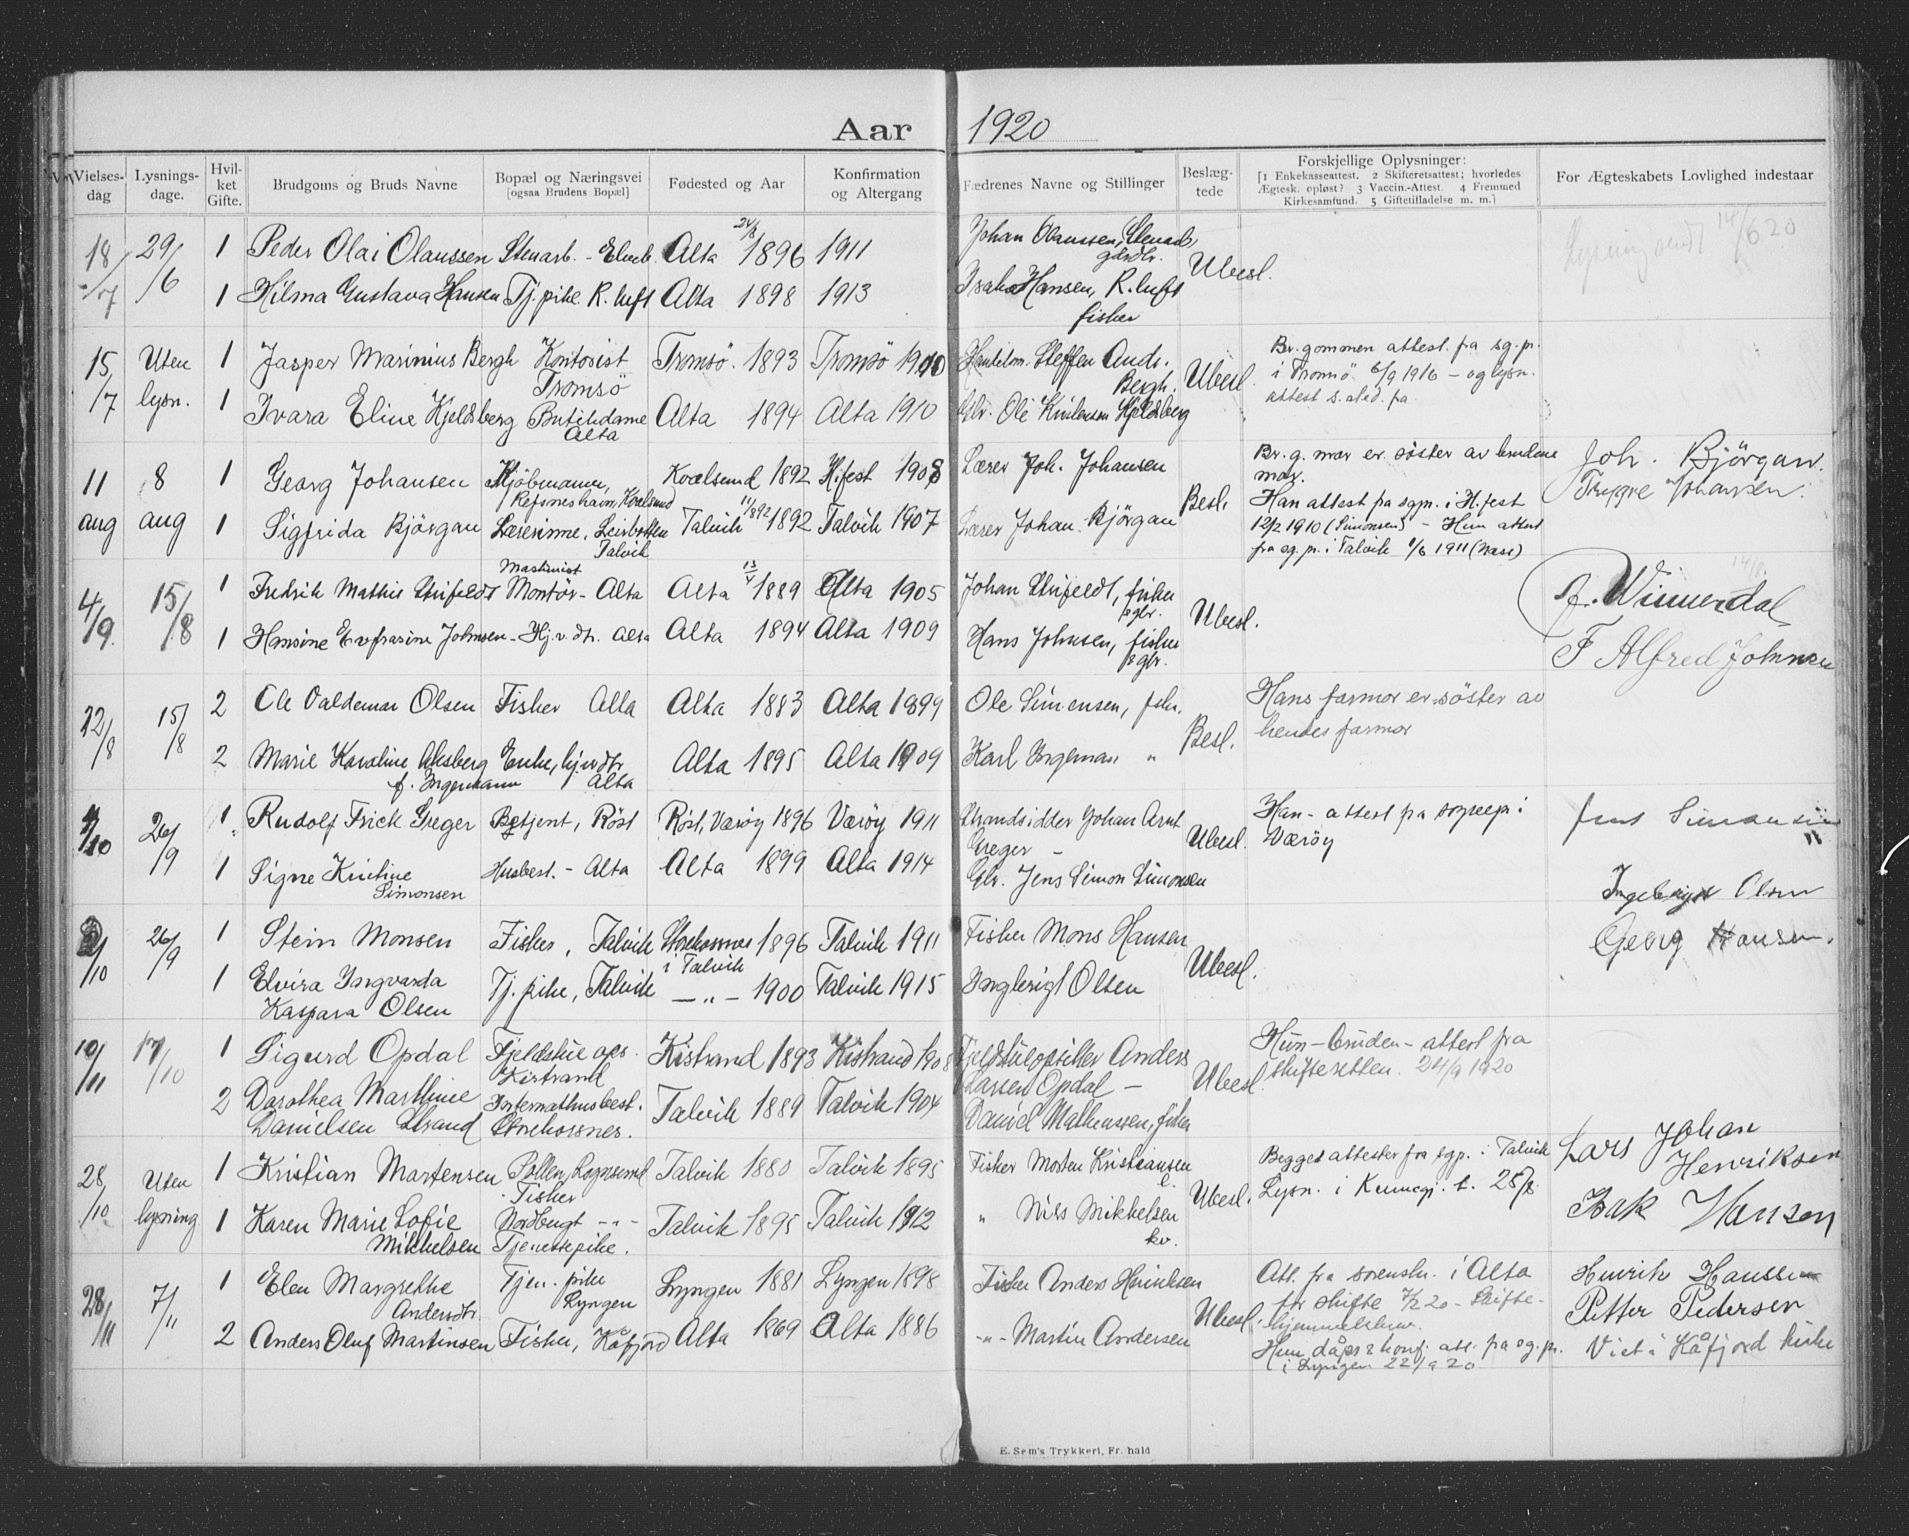 Aar 1920
Vielses- dag
Lysnings- dage.
Hvil- ket Gifte.
Brudgoms og Bruds Navne
Bopæl og Næringsvei [ogsaa Brudens Bopæl]
Fødested og Aar
Konfirmation og Altergang
Fædrenes Navne og Stillinger
Beslæg- tede
Forskjellige Oplysninger:
[1 Enkekasseattest. 2 Skifteretsattest; hvorledes
Ægtesk. opløst? 3 Vaccin.-Attest. 4 Fremmed
Kirkesamfund. 5 Giftetilladelse m. m.]
For Ægteskabets Lovlighed indestaar
18/7 29/6 1 Peder Olai Olaussen Stenarb. - Elveb. Alta 24/8 1896 1911 Johan Olaussen, Stenarb. gårdbr. Ubesl. Lysning sendt 14/6 20
1 Hilma Gustava Hansen Tj.pike R.luft Alta 1898 1913 Isak Hansen, R.luft fisker
15/7 Uten lysn. 1 Jasper Marinius Bergh Kontorist Tromsö Tromsö 1893 Tromsö 1910 Handelsm. Steffen Andr. Bergh. Ubesl. Br.gommen attest. fra sg.p. i Tromsö 6/9 1916 - og lysn. attest s.sted. fra
1 Ivara Eline Kjeldsberg Butikdame Alta Alta 1894 Alta 1910 Gbr. Ole Kjeldsberg
11 aug 8 aug 1 Georg Johansen Kjöbmann, Refsneshavn, Kvalsund Kvalsund 1892 H.fest 1908 Lærer Joh. Johansen Besl. Br.g. mor er söster av brudens mor. Joh. Björgan.
Han attest fra sgp. i H.fest 12/2 1910 (Simonsen) - Hun attest fra sg.p. i Talvik 1/6 1911 Trygve Johansen.
1 Sigfrida Björgan Lærerinne, Leirbotten Talvik Talvik 11/8 92 1892 Talvik 1907 Lærer Johan Björgan
4/9 15/8 1 Fredrik Mathis Maskinist Montör - Alta Alta 13/4 1889 Alta 1905 Johan fisker o gbr. Ubesl. Winnerdal
1 Hansine Evfrasine Johnsen - Hj.v.dtr. Alta Alta 1894 Alta 1909 Hans Johnsen, fisker o gbr. F Alfred Johnsen
22/8 15/8 2 Ole Valdemar Olsen Fisker Alta Alta 1883 Alta 1899 Ole Simensen, fisk. Besl. Hans farmor er söster av hendes farmor
2 Marie Karoline Aksberg f. Ingemann Enke, hj.v.dtr Alta Alta 1895 Alta 1909 Karl Ingeman "
4/10 26/9 1 Rudolf Frick Greger Betjent, Röst Röst, Værøy 1896 Værøy 1911 Strandsidder Johan Arnt Greger - Ubesl. Han - attest fra sogrepr i Værøy Jens Simonsen
1 Signe Kristine Simonsen Husbest. - Alta Alta 1899 Alta 1914 Gbr. Jens Simon Simonsen
2/10 26/9 1 Stein Monsen Fisker, Talvik Storekorsnes i Talvik 1896 Talvik 1911 Fisker Mons Hansen Ubesl. Ingebrigt Olsen
1 Elvira Ingvarda Kaspara Olsen Tj.pike, Talvik - " - 1900 Talvik 1915 Ingebrigt Olsen Georg Hansen.
10/11 17/10 1 Sigurd Opdal Fjeldstue ops. Kistrand Kistrand 1893 Kistrand 1908 Fjeldstueopsitter Anders Larsen Opdal - Ubesl. Hun - bruden - attest fra skifteretten. 24/9 1920
2 Dorothea Marthine Danielsen Strand Internathusbest. Storekorsnes. Talvik 1889 Talvik 1904 Daniel Matheussen, fisker
28/10 Uten lysning 1 Kristian Mortensen Pollen, Fisker Talvik 1880 Talvik 1895 Fisker Morten Kristiansen Ubesl. Begges attester fra sgp. i Talvik Lars Johan Henriksen
Lysn. i
1 Karen Marie Lofie Mikkelsen Nordbugt - " - Tjenestepike. Talvik 1895 Talvik 1912 " Nils Mikkelsen kv. Isak Hansen
28/11 7/11 1 Elen Margrethe Andersdtr. Tjen. pike Lyngen Lyngen 1881 Lyngen 1898 Fisker Anders Henriksen Ubesl. Att. fra sorenskr. i Alta for skifte 7/2 20 - Skifte- Henrik Hanssen
Petter Pedersen
2 Anders Oluf Martinsen Fisker, Kåfjord Alta 1869 Alta 1886 - " - Martin Andersen Hun dåps & konf. att. fra sg.pr. i Lyngen 22/9 20 Viet i Kåfjord kirke
E. Sem's Trykkeri, Fr.hald